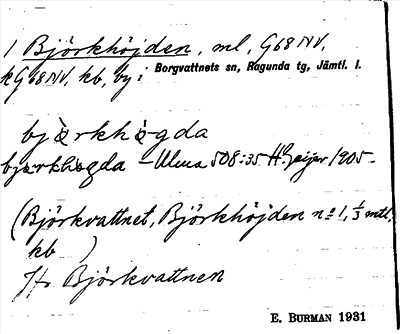 1 Björkhöjden, ml, G68NV,
kG68NV, kb, by i Borgvattnets sn, Ragunda tg, Jämtl. l.
bjòrkhògda
bjorkhogda – Ulma 508:35 H. Geijer 1905 –
(Björkvattnet, Björkhöjden nº 1, 1/3 mtl,
kb )
Hr Björkvattnen
E. BURMAN 1931